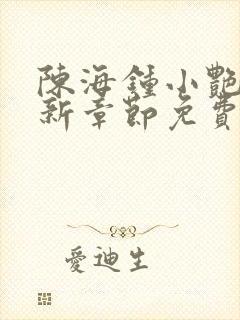 陳海鍾小艷
新章節免費
愛迪生